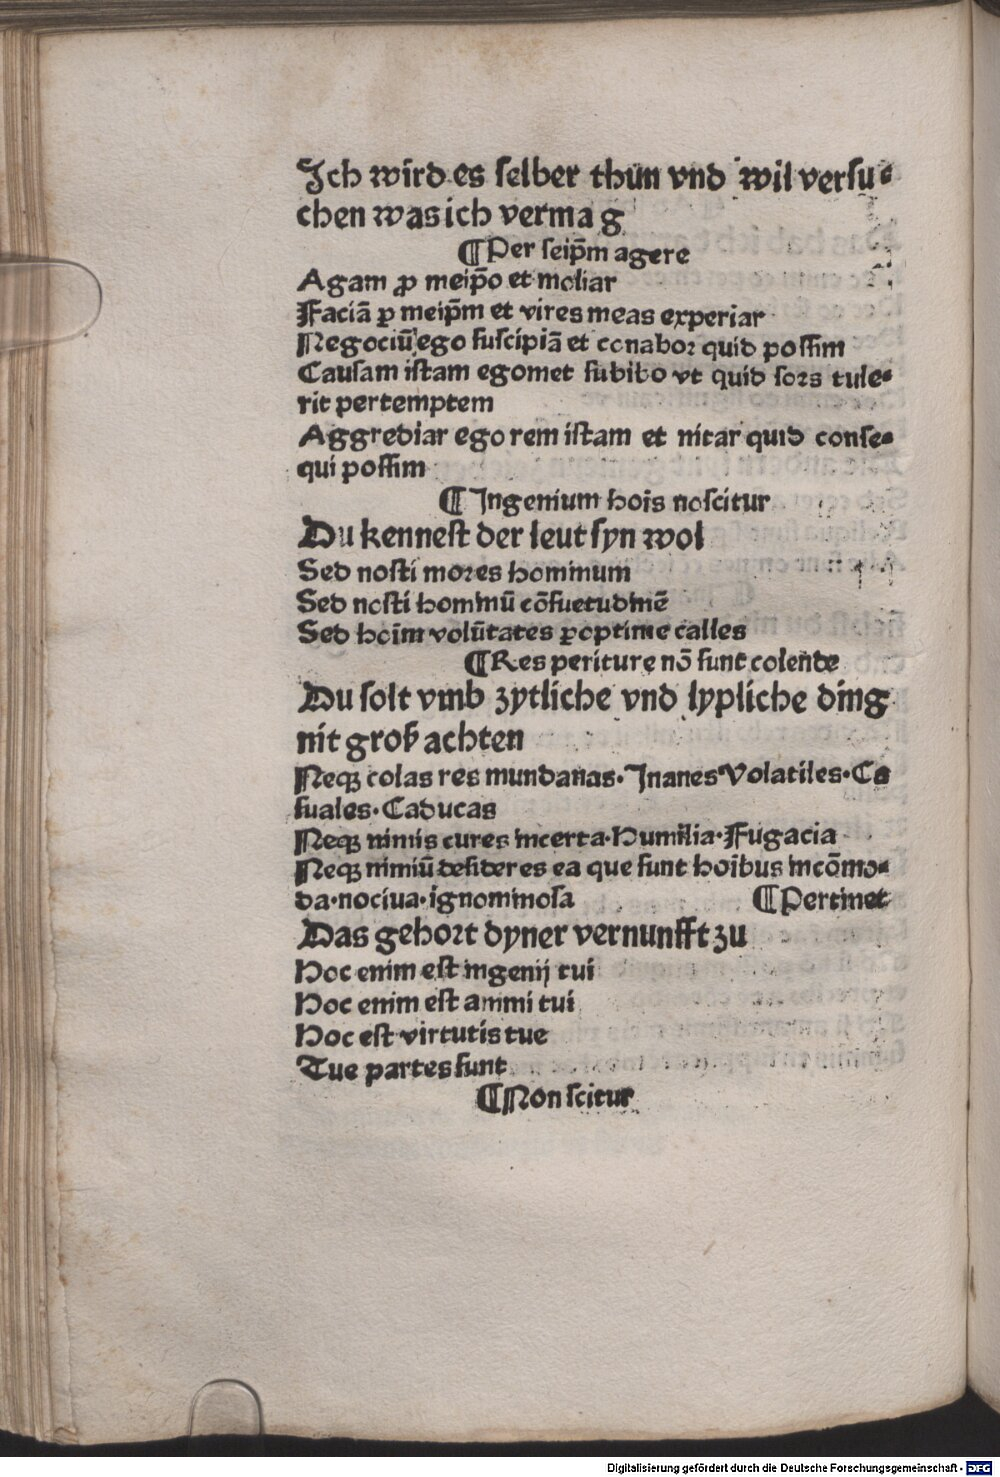 Ich wird es selber thun vnd wil versu⸗
chen was ich vermag
¶Per seip̃m agere
Agam ꝓ meip̃o et moliar
Faciã ꝑ meip̃m et vires meas experiar
Negociũ ego suscipiã et conabor quid possim
Causam istam egomet subibo vt quid sors tule⸗
rit pertemptem
Aggrediar ego rem istam et nitar quid conse⸗
qui possim
¶Ingenium hois̃ noscitur
Du kennest der leut syn wol
Sed nosti mores hominum
Sed nosti hominũ cõsuetudinẽ
Sed hoim̃ volũtates ꝑoptime calles
¶Res periture nõ sunt colende
Du solt vmb zytliche vnd lypliche ding
nit groß achten
Neqꝫ colas res mundanas. Inanes Volatiles. Ca
suales. Caducas
Neqꝫ nimis cures incerta. Humilia. Fugacia
Neqꝫ nimiũ desideres ea que sunt hoĩbus incõmo⸗
da. nociua. ignominosa ¶Pertinet
Das gehort dyner vernunfft zu
Hoc enim est ingenij tui
Hoc enim est animi tui
Hoc est virtutis tue
Tue partes sunt
¶Non scitur
Digitalisierung gefördert durch die Deutsche Forschungsgemeinschaft - DFG